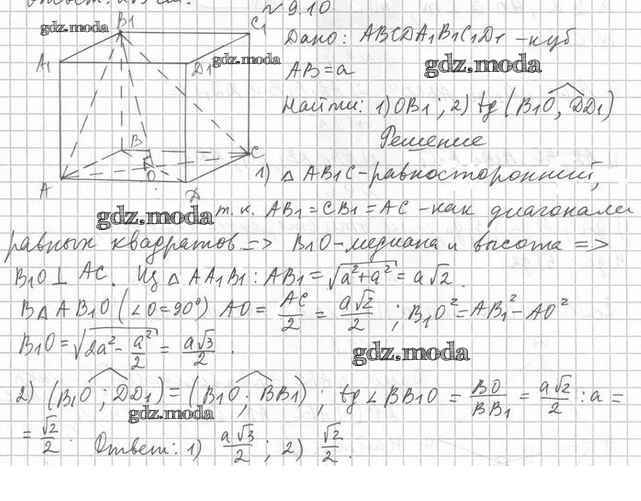 № 9.10
B1 C1 A1 D1 B C A O D
gdz.moda
gdz.moda
Дано: ABCDA1B1C1D1 - куб
gdz.moda
AB = a
Найти: 1) OB1; 2) tg (B1O, DD1)
Решение
1) △ AB1C - равносторонний,
gdz.moda
т.к. AB1 = CB1 = AC - как диагонали
равных квадратов => B1O - медиана и высота =>
B1O ⊥ AC. Из △ AA1B1: AB1 = √(a² + a²) = a√2.
В △ AB1O (∠O = 90°) AO = AC/2 = a√2/2; B1O² = AB1² - AO²
B1O = √(2a² - a²/2) = a√3/2.
gdz.moda
2) (B1O; DD1) = (B1O; BB1); tg ∠ BB1O = BO/BB1 = a√2/2 : a =
gdz.moda
= √2/2. Ответ: 1) a√3/2; 2) √2/2.